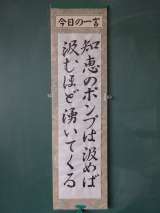 今日の一言
知恵のポンプは汲めば
汲むほど湧いてくる